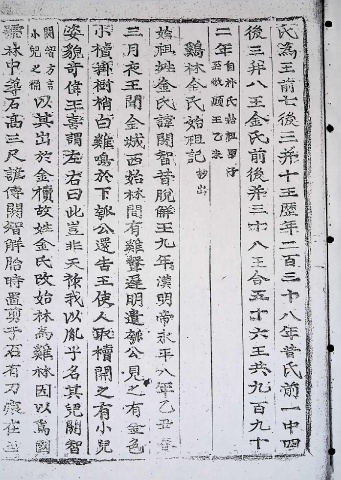 氏爲王前七後三幷十王歷年二百三十八年昔氏前一中四
後三幷八王金氏前後幷三十八王合五十六王共九百九十
二年 自朴氏始祖甲子 至敬順王乙未
鷄林金氏始祖記 抄出
始祖姓金氏諱閼智昔脫解王九年漢明帝永平八年乙丑春
三月夜王聞金城西始林間有雞聲遲明遣瓠公見之有金色
小櫝掛樹梢白雞鳴於下瓠公還告王使人取櫝開之有小兒
姿貌奇偉王喜謂左右曰此豈非天祿我以胤乎名其兒閼智
閼智方言 小兒之稱 以其出於金櫝故姓金氏改始林爲雞林因以爲國
林中尊石高三尺諺傳閼智解胎時置剪子石有刀痕在